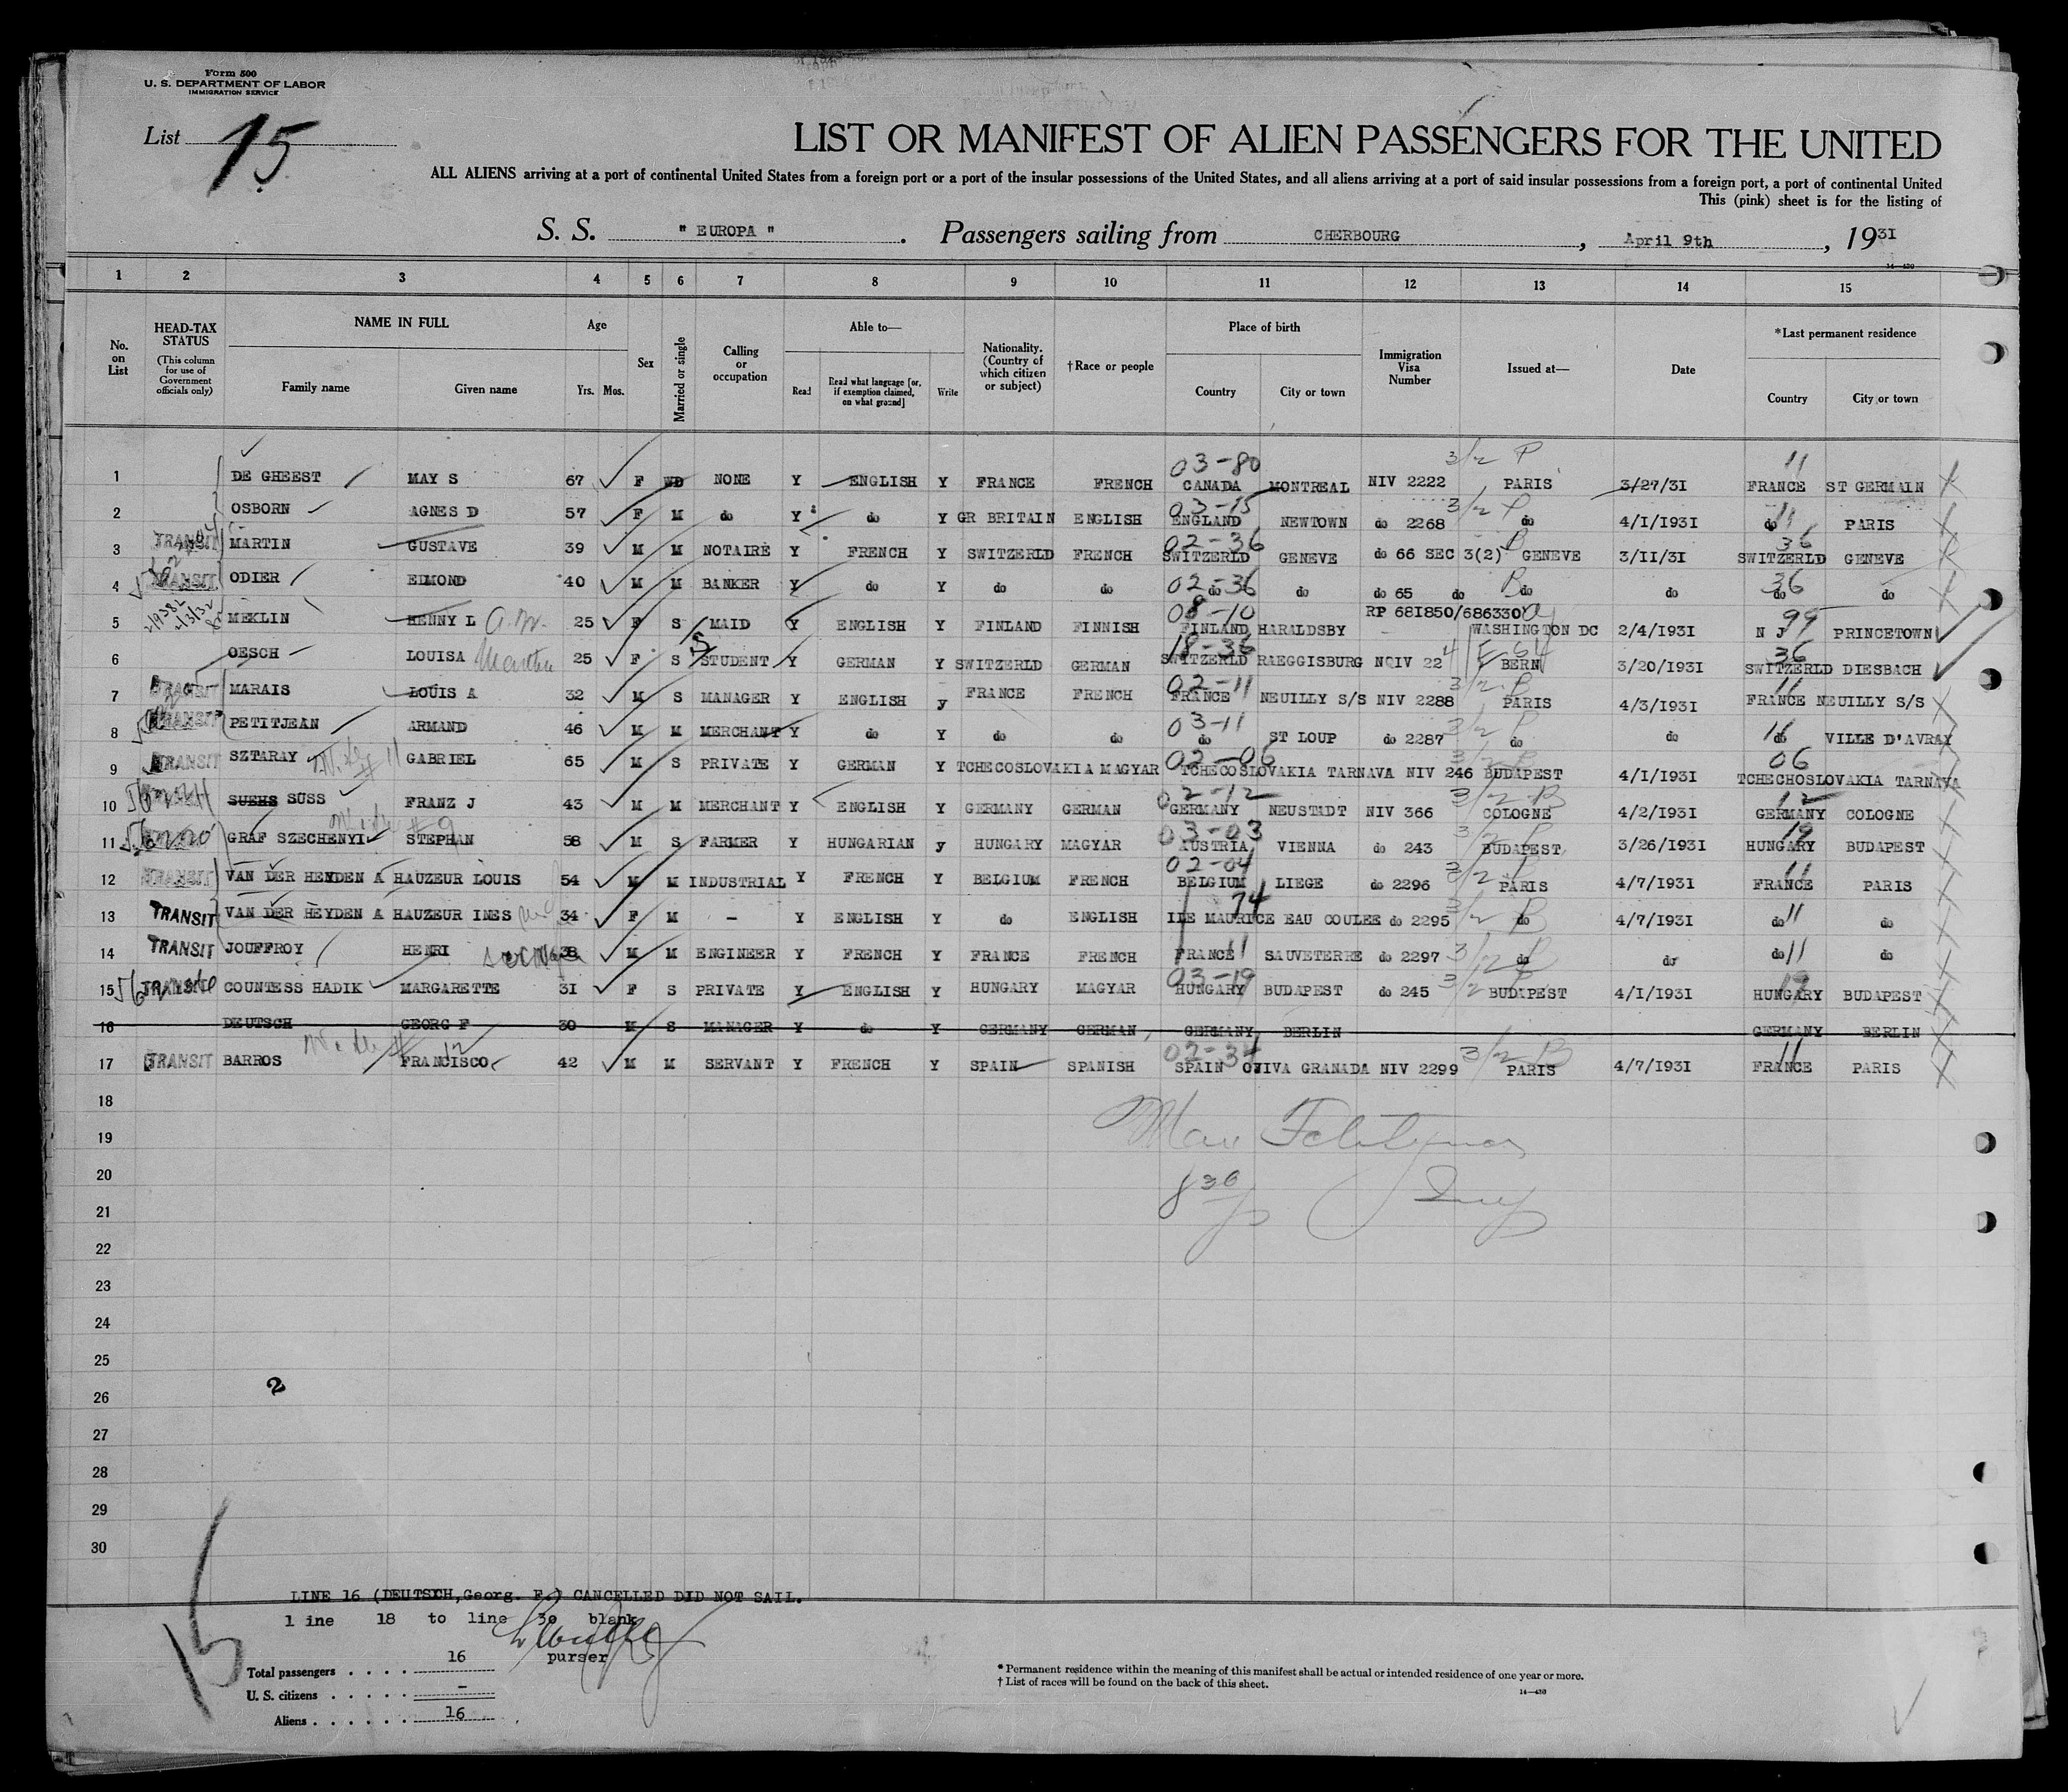 Form 500
U. S. DEPARTMENT OF LABOR
IMMIGRATION SERVICE
List 15
LIST OR MANIFEST OF ALIEN PASSENGERS FOR THE UNITED
ALL ALIENS arriving at a port of continental United States from a foreign port or a port of the insular possessions of the United States, and all aliens arriving at a port of said insular possessions from a foreign port, a port of continental United
This (pink) sheet is for the listing of
S. S. " EUROPA " . Passengers sailing from CHERBOURG , April 9th , 1931
14—430
1 2 3 4 5 6 7 8 9 10 11 12 13 14 15
No. on List
HEAD-TAX STATUS (This column for use of Government officials only)
NAME IN FULL Family name Given name
Age Yrs. Mos.
Sex
Married or single
Calling or occupation
Able to— Read Read what language [or, if exemption claimed, on what ground] Write
Nationality. (Country of which citizen or subject)
†Race or people
Place of birth Country City or town
Immigration Visa Number
Issued at—
Date
*Last permanent residence Country City or town
03-80 3/2 P 11
1 DE GHEEST MAY S 67 F WD NONE Y ENGLISH Y FRANCE FRENCH CANADA MONTREAL NIV 2222 PARIS 3/27/31 FRANCE ST GERMAIN
03-15 3/2 P 11
2 OSBORN AGNES D 57 F M do Y do Y GR BRITAIN ENGLISH ENGLAND NEWTOWN do 2268 do 4/1/1931 do PARIS
02-36 36
3 TRANSIT MARTIN GUSTAVE 39 M M NOTAIRE Y FRENCH Y SWITZERLD FRENCH SWITZERLD GENEVE do 66 SEC 3(2) GENEVE 3/II/31 SWITZERLD GENEVE
02-36 36
4 TRANSIT ODIER EDMOND 40 M M BANKER Y do Y do do do do do 65 do do do do do
08-10 RP 681850/686330 99
5 MEKLIN HENNY L 25 F S MAID Y ENGLISH Y FINLAND FINNISH FINLAND HARALDSBY WASHINGTON DC 2/4/1931 N J PRINCETON
18-36 36
6 OESCH LOUISA Martha 25 F S STUDENT Y GERMAN Y SWITZERLD GERMAN SWITZERLD RAEGGISBURG NQIV 224 BERN 3/20/1931 SWITZERLD DIESBACH
02-11 3/2 P 11
7 TRANSIT MARAIS LOUIS A 32 M S MANAGER Y ENGLISH y FRANCE FRENCH FRANCE NEUILLY S/S NIV 2288 PARIS 4/3/1931 FRANCE NEUILLY S/S
03-11 3/2 P 11
8 TRANSIT PETITJEAN ARMAND 46 M M MERCHANT Y do Y do do do ST LOUP do 2287 do do do VILLE D'AVRAY
02-06 3/2 06
9 TRANSIT SZTARAY GABRIEL 65 M S PRIVATE Y GERMAN Y TCHECOSLOVAKIA MAGYAR TCHECOSLOVAKIA TARNAVA NIV 246 BUDAPEST 4/1/1931 TCHECHOSLOVAKIA TARNAVA
02-12 3/2 12
10 SUEHS SUSS FRANZ J 43 M M MERCHANT Y ENGLISH Y GERMANY GERMAN GERMANY NEUSTADT NIV 366 COLOGNE 4/2/1931 GERMANY COLOGNE
03-03 3/2 19
11 GRAF SZECHENYI STEPHAN 58 M S FARMER Y HUNGARIAN y HUNGARY MAGYAR AUSTRIA VIENNA do 243 BUDAPEST 3/26/1931 HUNGARY BUDAPEST
02-04 3/2 11
12 TRANSIT VAN DER HEYDEN A HAUZEUR LOUIS 54 M M INDUSTRIAL Y FRENCH Y BELGIUM FRENCH BELGIUM LIEGE do 2296 PARIS 4/7/1931 FRANCE PARIS
74 3/2
13 TRANSIT VAN DER HEYDEN A HAUZEUR INES 34 F M - Y ENGLISH Y do ENGLISH ILE MAURICE EAU COULEE do 2295 do 4/7/1931 do 11 do
14 TRANSIT JOUFFROY HENRI 38 M M ENGINEER Y FRENCH Y FRANCE FRENCH FRANCE 11 SAUVETERRE do 2297 3/2 do do do 11 do
03-19 3/2 19
15 TRANSIT COUNTESS HADIK MARGARETTE 31 F S PRIVATE Y ENGLISH Y HUNGARY MAGYAR HUNGARY BUDAPEST do 245 BUDAPEST 4/1/1931 HUNGARY BUDAPEST
16 DEUTSCH GEORG F 30 M S MANAGER Y do Y GERMANY GERMAN GERMANY BERLIN GERMANY BERLIN
02-34 3/2 11
17 TRANSIT BARROS FRANCISCO 42 M M SERVANT Y FRENCH Y SPAIN SPANISH SPAIN OJIVA GRANADA NIV 2299 PARIS 4/7/1931 FRANCE PARIS
18
19
20
21
22
23
24
25
26
2
27
28
29
30
LINE 16 (DEUTSCH,Georg. F.) CANCELLED DID NOT SAIL.
line 18 to line 30 blank
purser
15
Total passengers . . . . 16
U. S. citizens . . . . . -
Aliens . . . . . . 16
* Permanent residence within the meaning of this manifest shall be actual or intended residence of one year or more.
† List of races will be found on the back of this sheet.
14—430